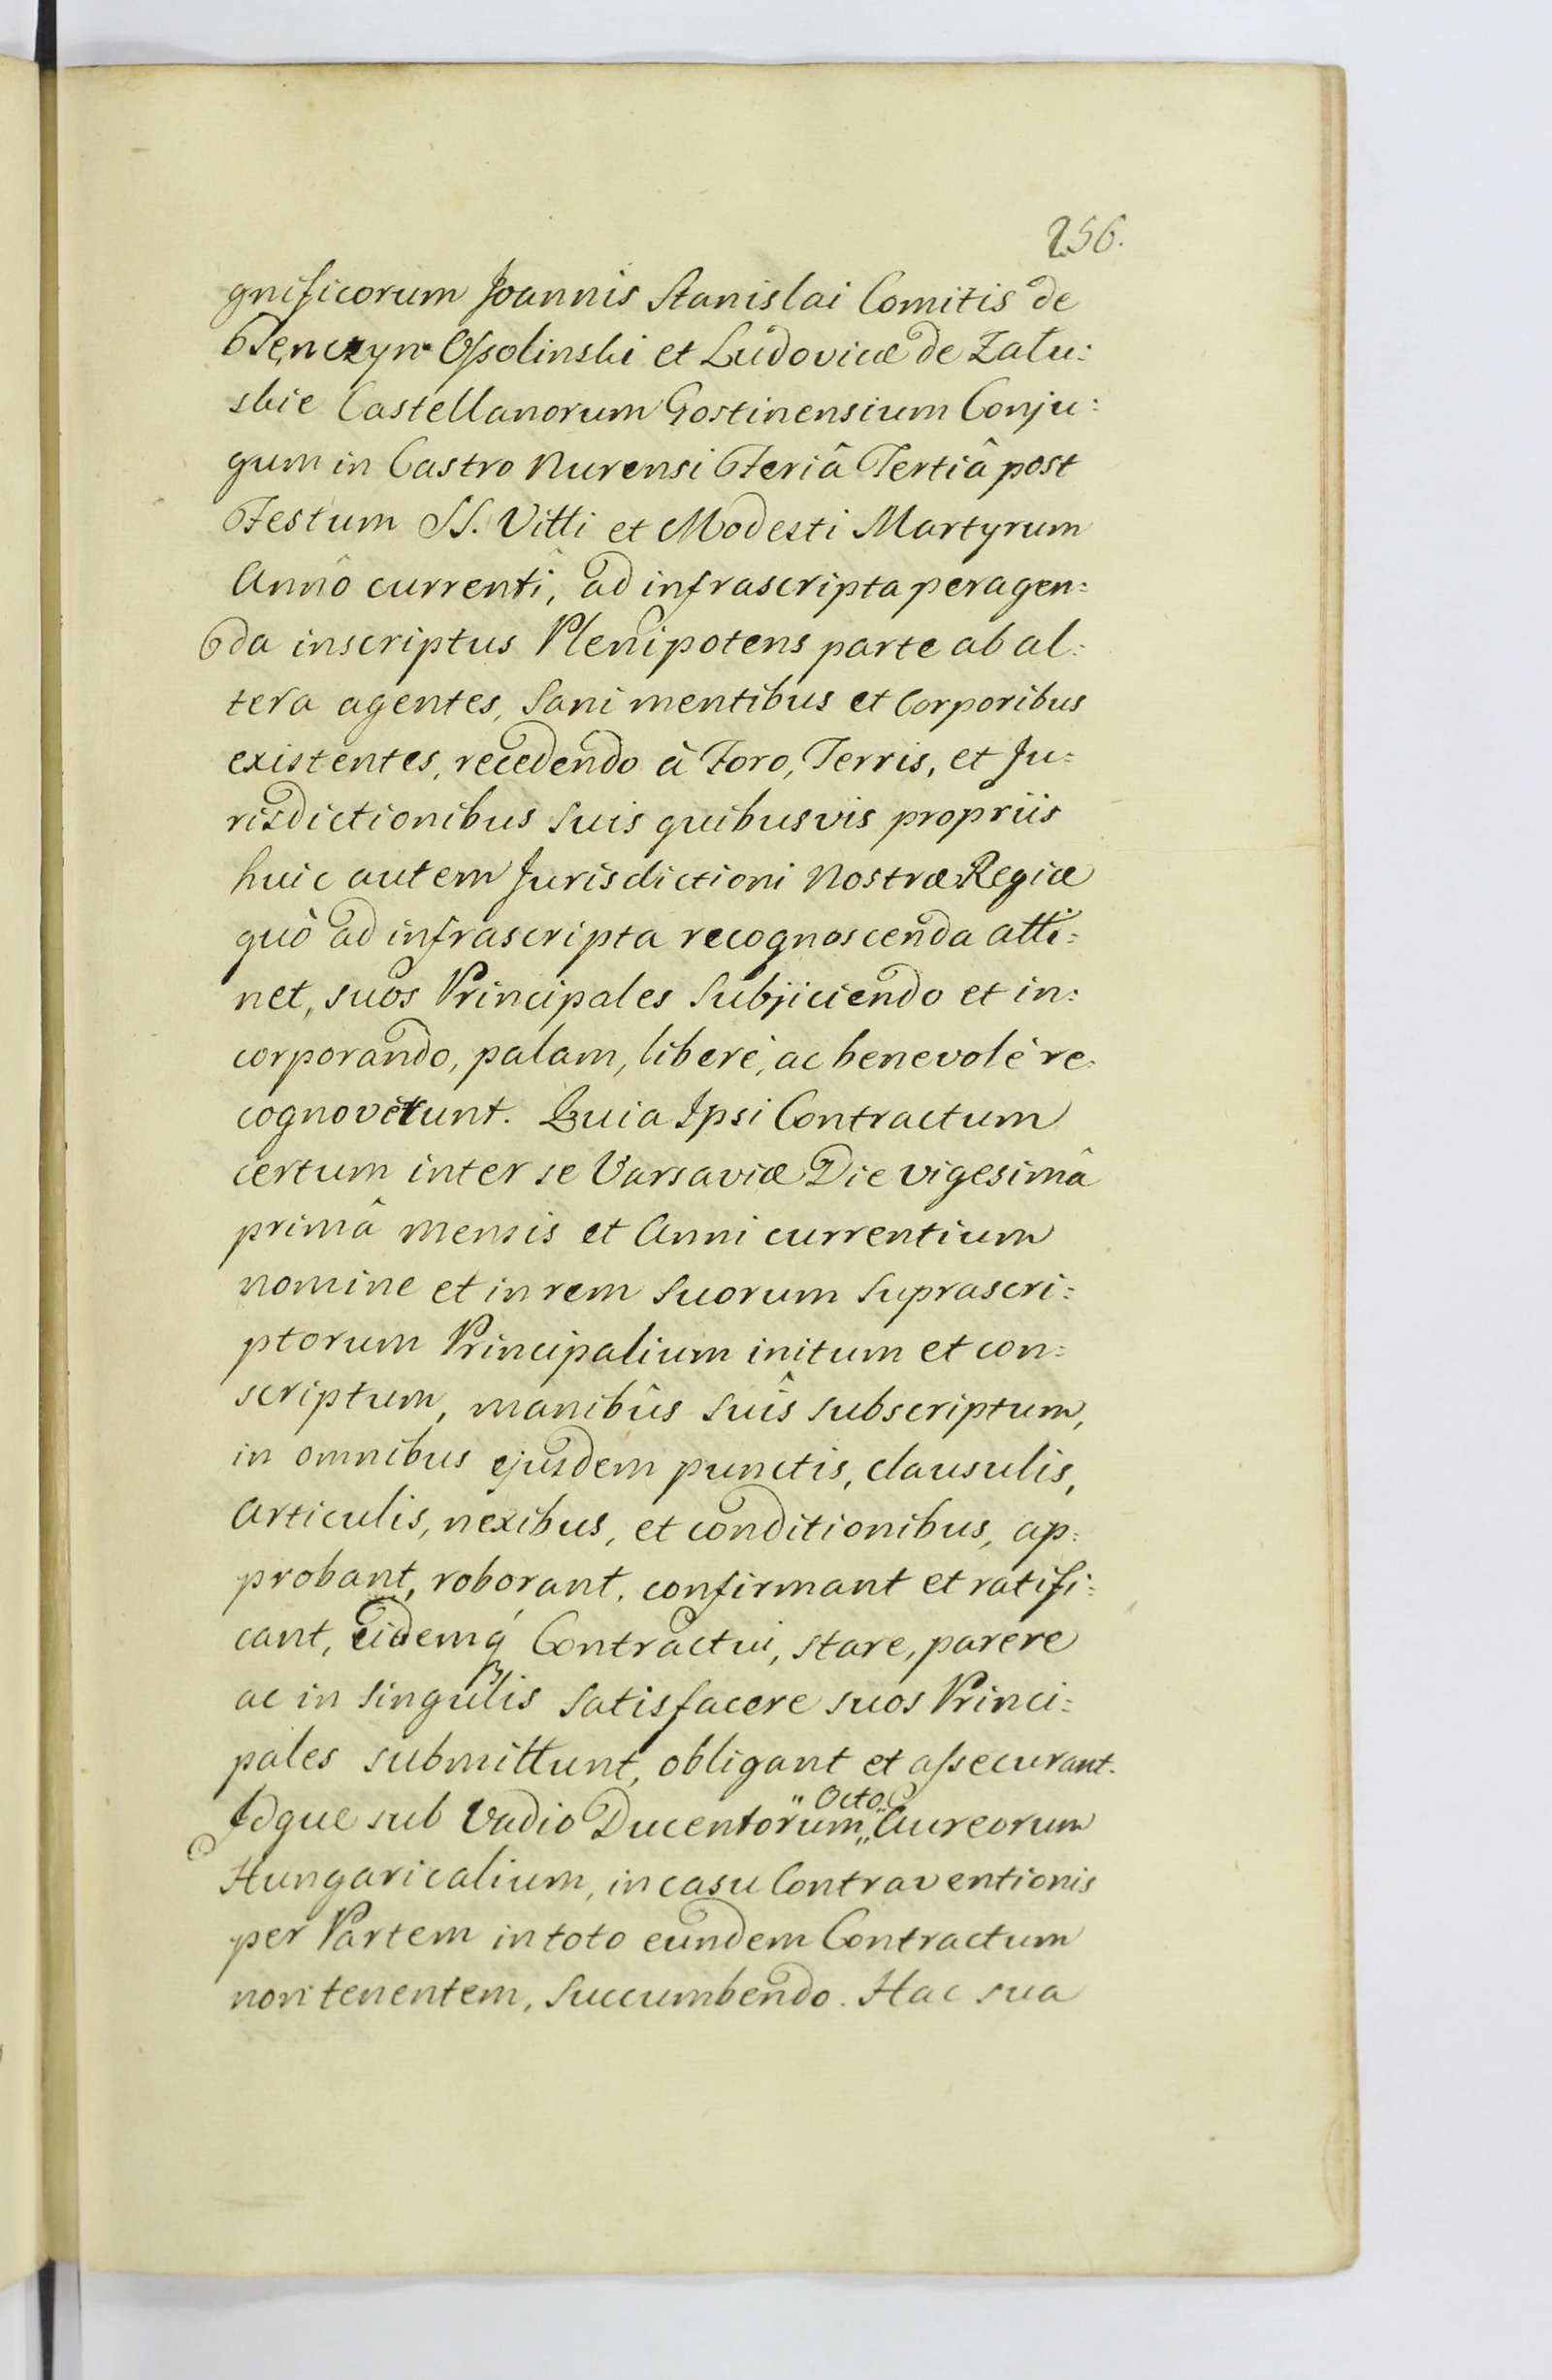 256.
gnificorum Joannis Stanislai Comitis de
Tęnczyn Ossolinski et Ludovicæ de Zału:
skie Castellanorum Gostinensium Conju:
gum in Castro Nurensi Feriâ Tertiâ post
Festum SS. Vitti et Modesti Martyrum
Annô currentî, ad infrascripta peragen:
da inscriptus Plenipotens parte ab al:
tera agentes, Sani mentibus et Corporibus
existentes, recedendo à Foro, Terris, et Ju:
risdictionibus Suis quibusvis propriis
huic autem Jurisdictioni Nostræ Regiæ
quò ad infrascripta recognoscenda atti:
net, suos Principales Subjiciendo et in:
corporando, palam, liberè, ac benevolè re:
cognoverunt. Quia Ipsi Contractum
certum inter se Varsaviæ Die vigesimâ
primâ mensis et Anni currentium
nomine et in rem Suorum Suprascri:
ptorum Principalium initum et con:
scriptum, manibûs Suîs subscriptum,
in omnibus ejusdem punctis, clausulis,
Articulis, nexibus, et conditionibus, ap:
probant, roborant, confirmant et ratifi:
cant, eidemq́ Contractui, stare, parere
ac in Singulis Satisfacere suos Princi:
pales submittunt, obligant et assecurant.
Idque sub Vadio Ducentorum „Octo„ Aureorum
Hungaricalium, in casu Contraventionis
per Partem in toto eundem Contractum
non tenentem, Succumbendo. Hac sua